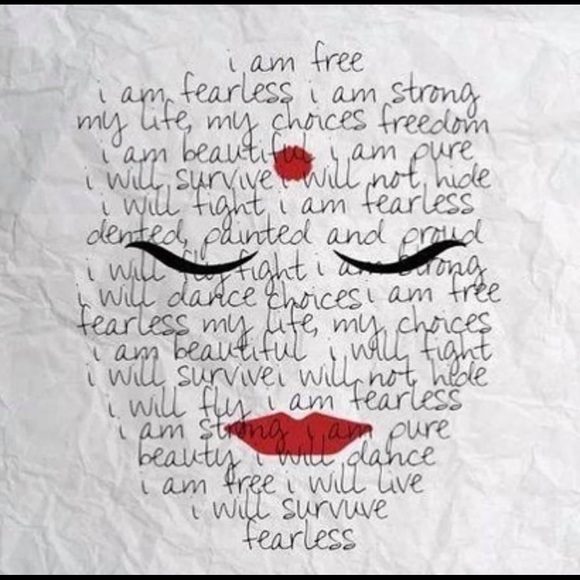 i am free
i am fearless i am strong
my life, my choices freedom
i am beautiful i am pure
i will survive i will not hide
i will fight i am fearless
dented, painted and proud
i will fly fight i am strong
i will dance choices i am free
fearless my life, my choices
i am beautiful i will fight
i will survive i will not hide
i will fly i am fearless
i am strong i am pure
beauty i will dance
i am free i will live
i will survuve
fearless